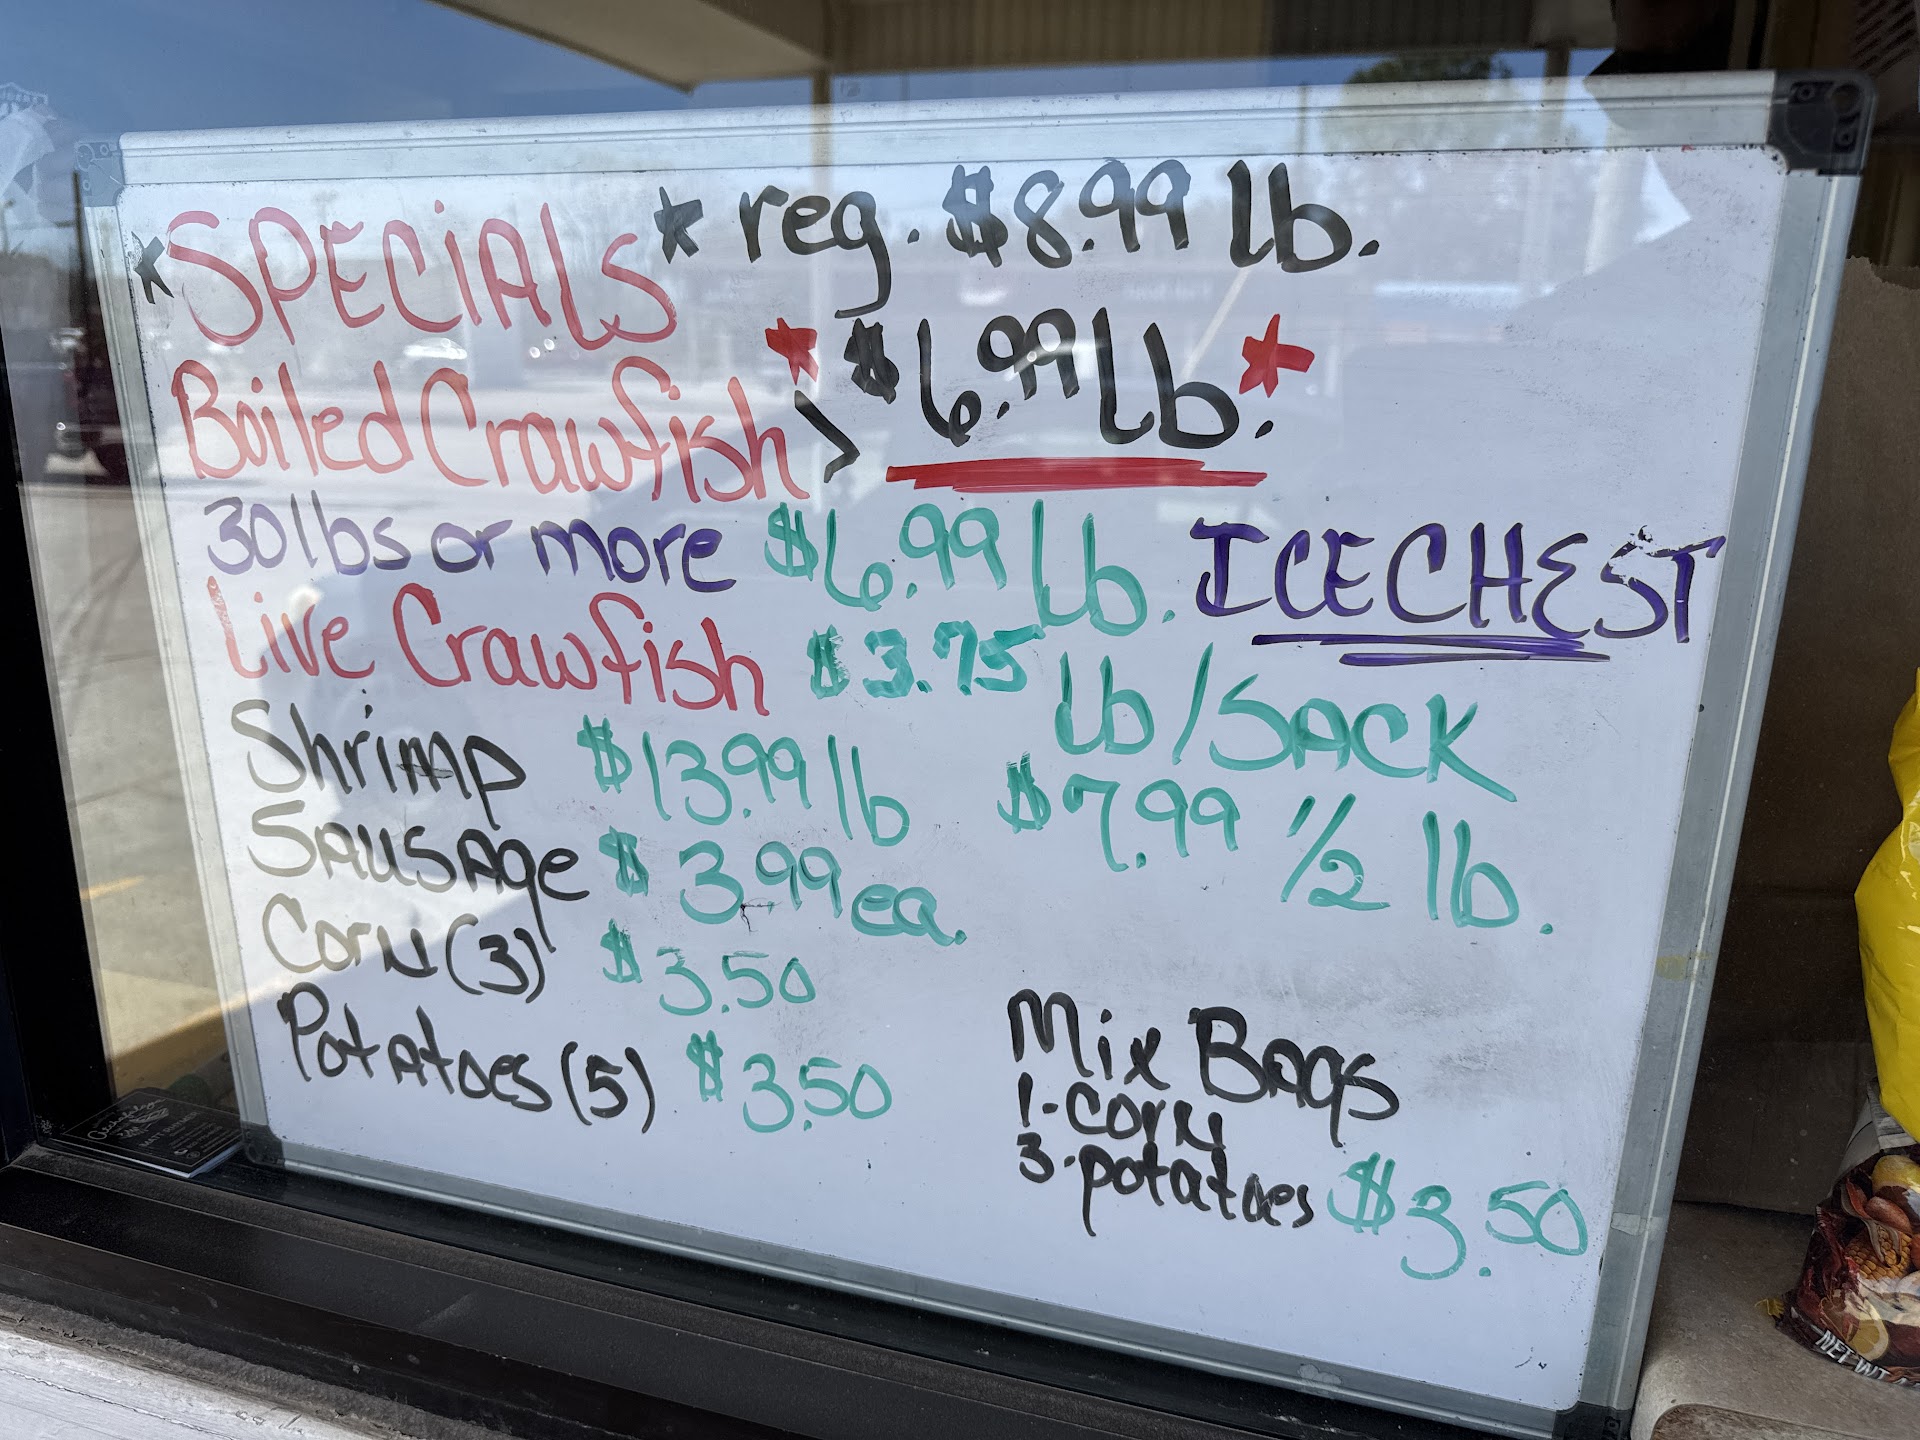 *SPECiAls* reg. $8.99 lb.
Boiled Crawfish > *$6.99 lb.*
30 lbs or more $6.99 lb. ICE CHEST
Live Crawfish $3.75 lb/SACK
Shrimp $13.99 lb $7.99 1/2 lb.
SAUSAge $3.99 ea.
Corn (3) $3.50
Potatoes (5) $3.50
Mix BAgs
1-corn
3-potatoes $3.50
NET WT